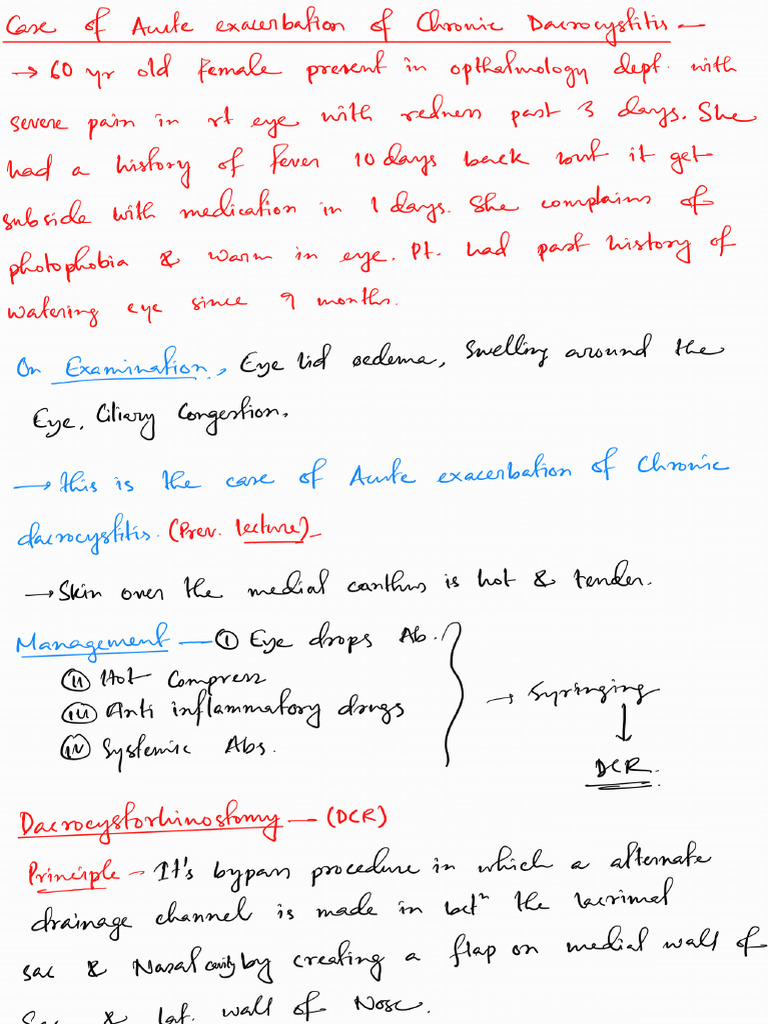 Case of Acute exacerbation of Chronic Dacrocystitis —
→ 60 yr old female present in opthalmology dept. with
severe pain in rt eye with redness past 3 days. She
had a history of fever 10 days back but it get
subside with medication in 1 days. She complains of
photophobia & warm in eye. Pt. had past history of
watering eye since 9 months.
On Examination, Eye lid oedema, Swelling around the
Eye, Ciliary Congestion.
→ this is the case of Acute exacerbation of Chronic
dacrocystitis. (Prev. lecture)
→ Skin over the medial canthus is hot & tender.
Management — (i) Eye drops Ab.
(ii) Hot Compress
(iii) Anti inflammatory drugs
(iv) Systemic Abs.
→ Syringing
↓
DCR.
Dacrocystorhinostomy — (DCR)
Principle - It's bypass procedure in which a alternate
drainage channel is made in betn the lacrimal
sac & Nasal cavity by creating a flap on medial wall of
Sac & lat. wall of Nose.